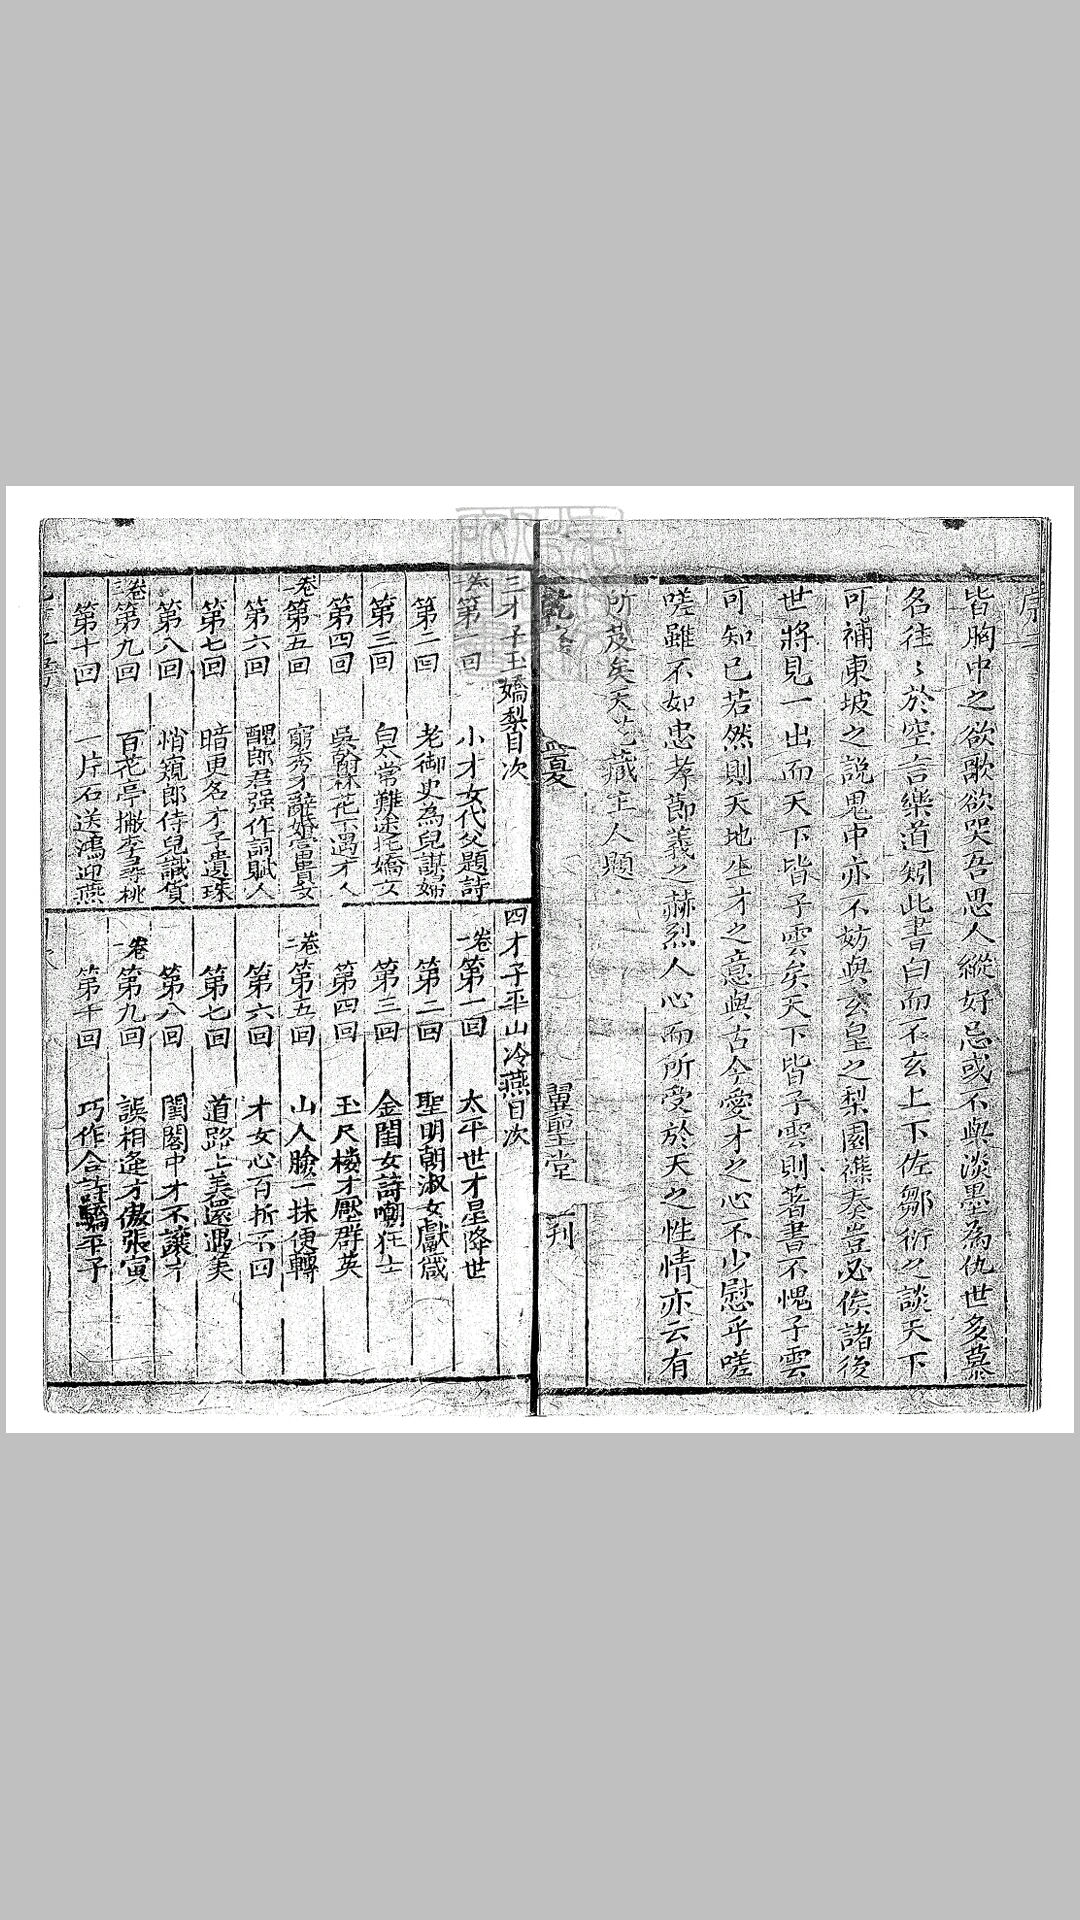 皆胸中之欲歌欲哭吾思人縱好忌或不與淡墨為仇世多慕
名往〻於空言樂道矧此書白而不玄上下佐鄒衍之談天下
可補東坡之說鬼中亦不妨與玄皇之梨園襍奏豈必俟諸後
世將見一出而天下皆子雲矣天下皆子雲則著書不愧子雲
可知已若然則天地生才之意與古今愛才之心不少慰乎嗟
嗟雖不如忠孝節義之赫烈人心而所受於天之性情亦云有
所及矣天花藏主人題
夏
翼聖堂 刊
三才子玉嬌梨目次
一卷 第一回 小才女代父題詩
第二回 老御史為兒謀婦
第三回 白太常難途托嬌女
第四回 吳翰林花下遇才人
二卷 第五回 窮秀才辭婚富貴女
第六回 醜郎君强作詞賦人
第七回 暗更名才子遺珠
第八回 悄窺郎侍兒識貨
三卷 第九回 百花亭撇李尋桃
第十回 一片石送鴻迎燕
四才子平山冷燕目次
一卷 第一回 太平世才星降世
第二回 聖明朝淑女獻箴
第三回 金閨女詩嘲狂士
第四回 玉尺樓才壓群英
二卷 第五回 山人臉一抹便轉
第六回 才女心百折不回
第七回 道路上美還遇美
第八回 閨閣中才不讓才
卷 第九回 誤相逢才傲張寅
第十回 巧作合詩驕平子